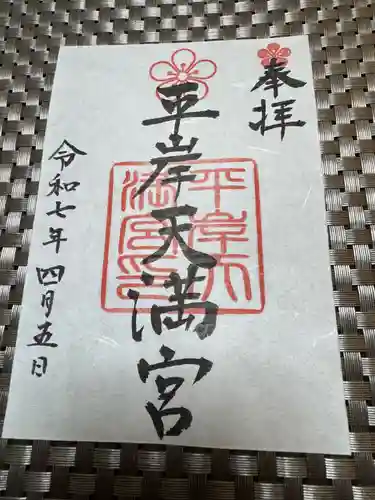 奉拝
平岸天満宮
平岸天満宮印
令和七年四月五日